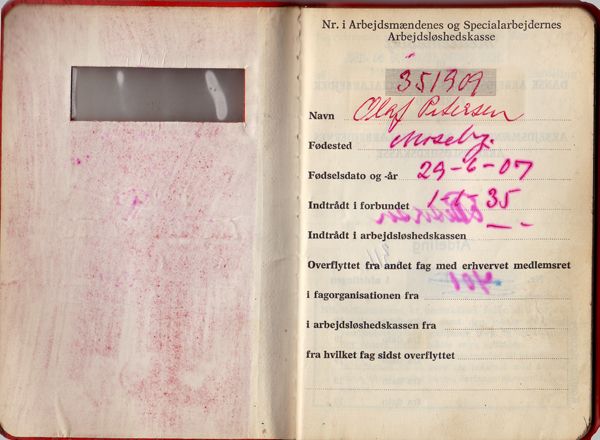 Nr. i Arbejdsmændenes og Specialarbejdernes
Arbejdsløshedskasse
351909
Navn Olaf Petersen
Fødested Moseby.
Fødselsdato og -år 29-6-07
Indtrådt i forbundet 1-1-35
Indtrådt i arbejdsløshedskassen — " —
Overflyttet fra andet fag med erhvervet medlemsret
i fagorganisationen fra
i arbejdsløshedskassen fra
fra hvilket fag sidst overflyttet